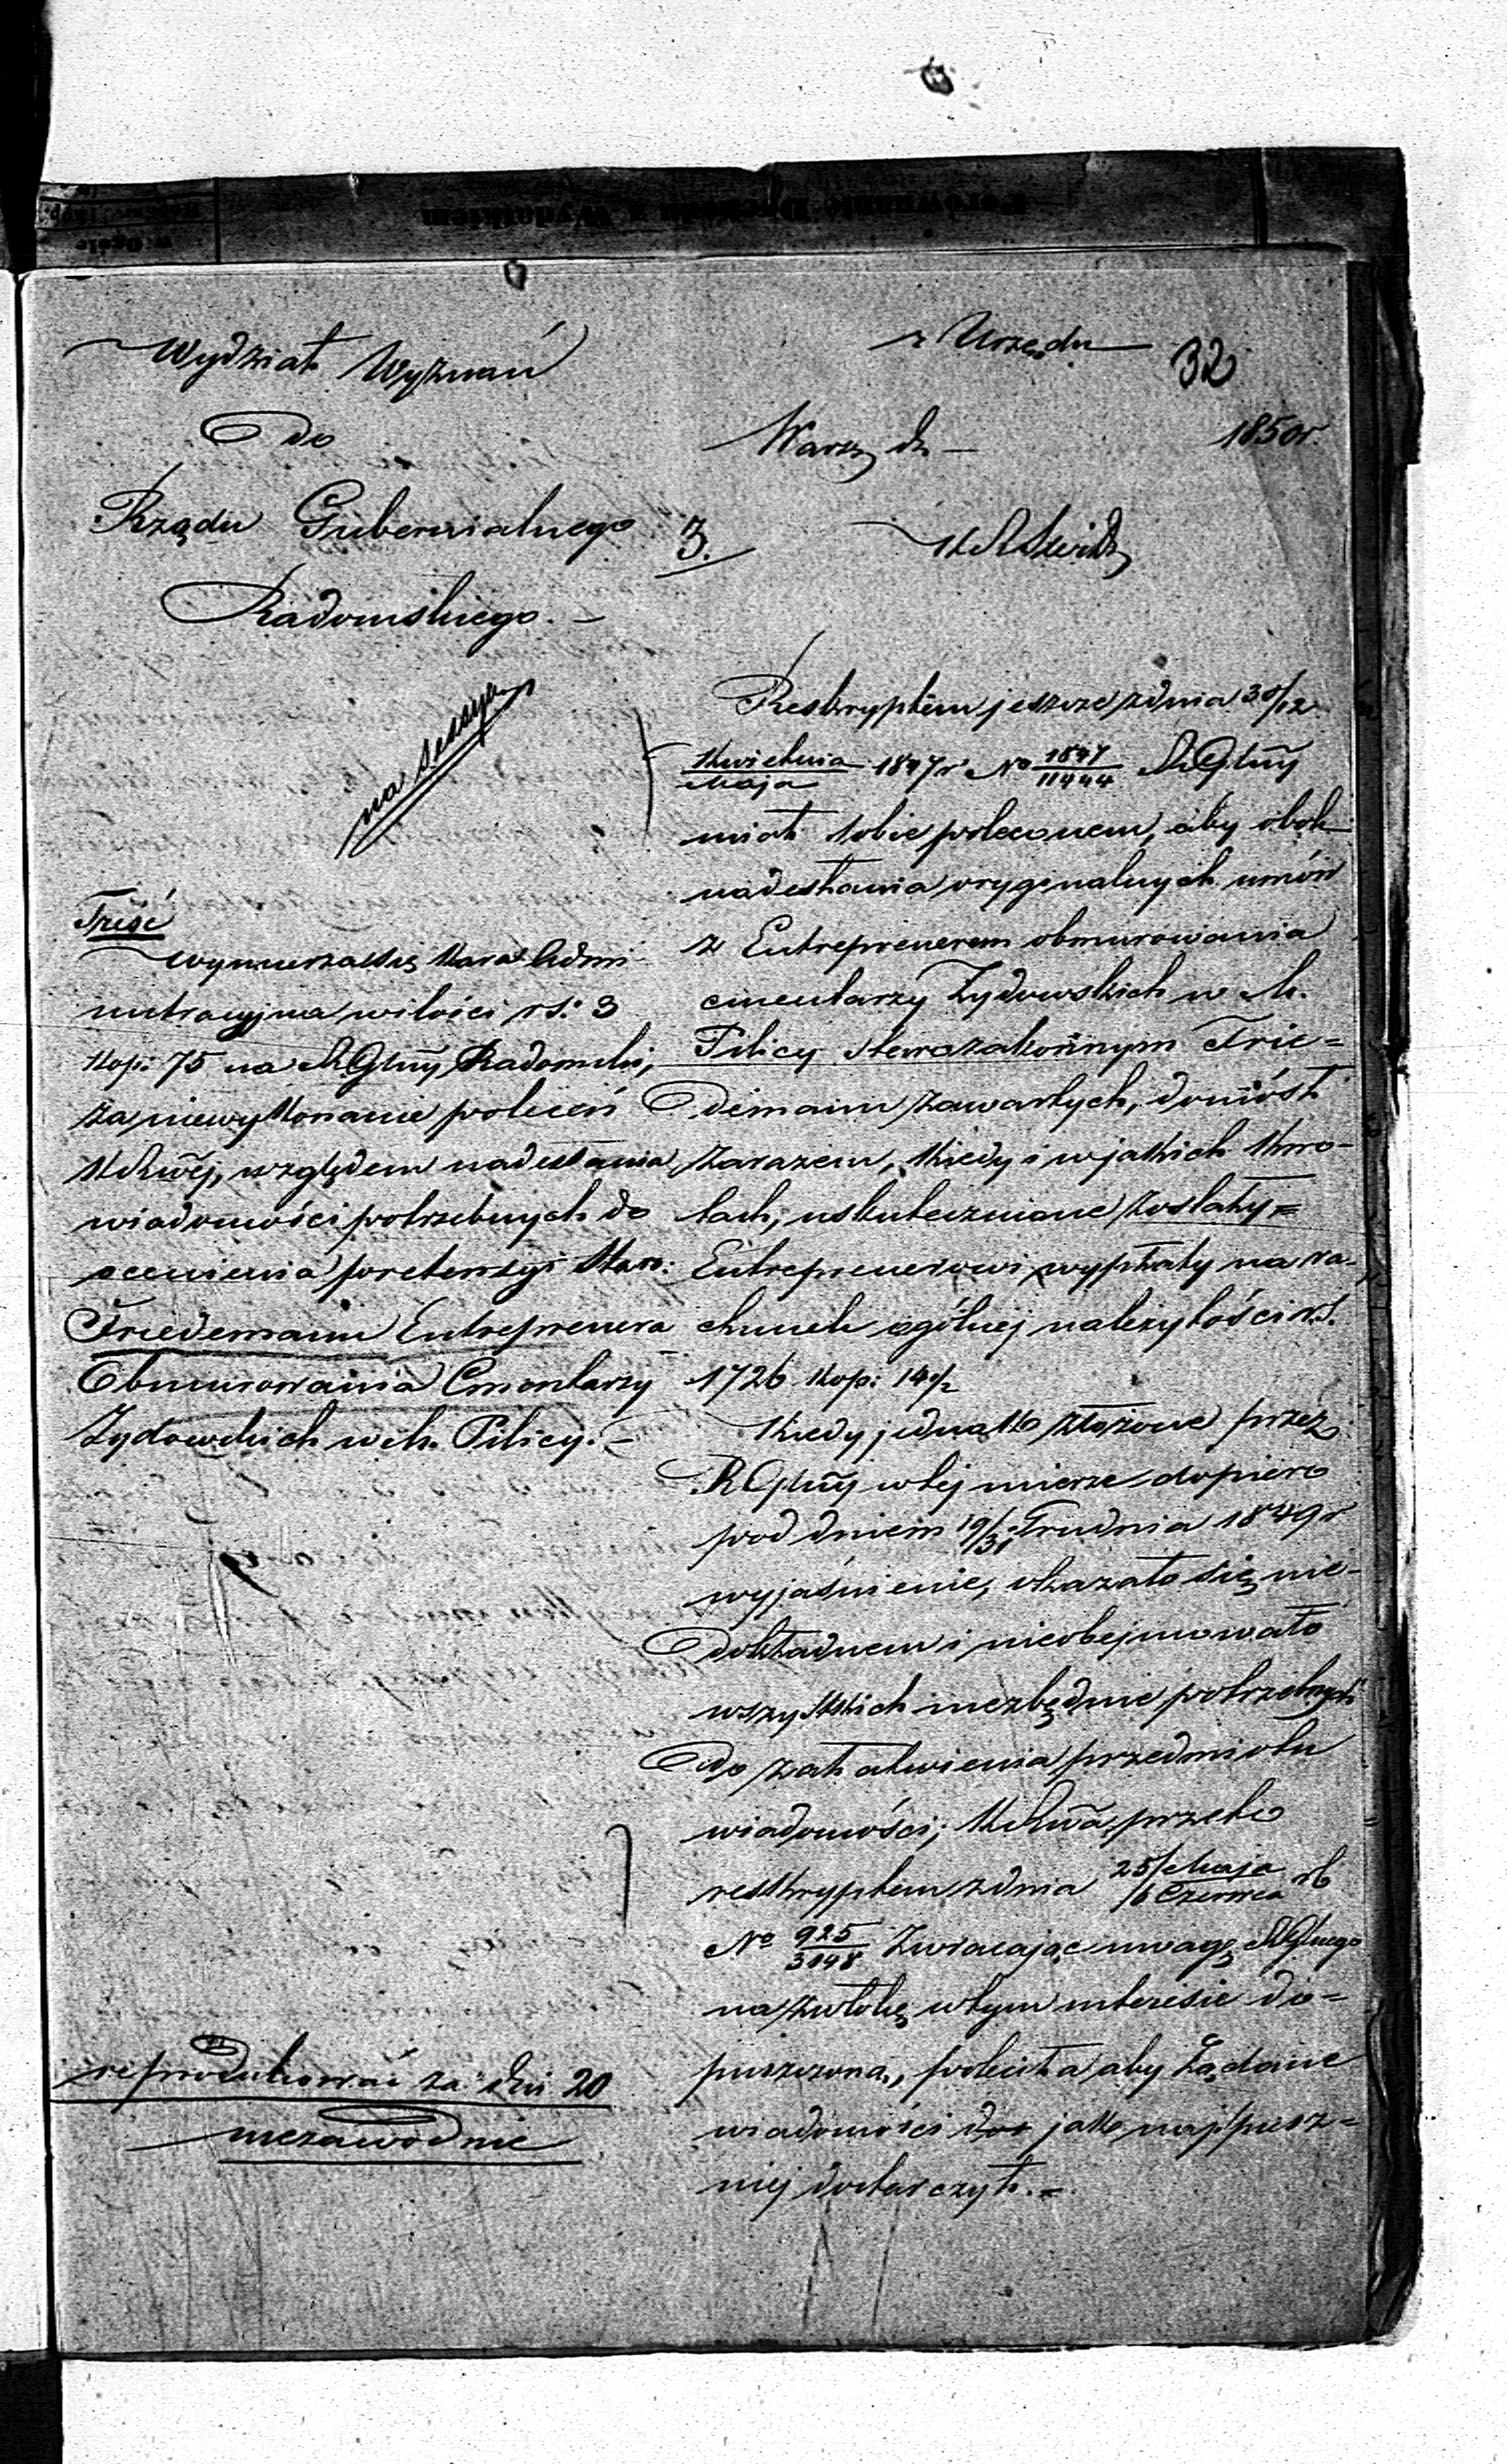 Wydział Wyznań
do
Rządu Gubernialnego
Radomskiego. —
na sessyę
Treść
Wymierza się kara Admi-
nistracyjna w ilości rs: 3
kop: 75 na RGlny Radomski,
za niewykonanie poleceń
KRSwej, względem nadesłania
wiadomości potrzebnych do
ocenienia pretensyi Staro:
Friedemann Entreprenera
Obmurowania Cmentarzy
Żydowskich w M. Pilicy. —
reprodukować za dni 20
niezawodnie
z Urzędu
32
Warsz. d. — 1850 r.
3.
Reskryptem jeszcze z dnia 30/12
Kwietnia/Maja 1847 r No 1847/11444 RGlny
miał sobie poleconem, aby obok
nadesłania oryginalnych umów
z Entreprenerem obmurowania
cmentarzy Żydowskich w M.
Pilicy Starozakonnym Frie=
demann zawartych, doniósł
zarazem, kiedy i w jakich kwo-
tach, uskutecznione zostały=
Entreprenerowi wypłaty na ra-
chunek ogólnej należytości rs.
1726 kop: 14 1/2
Kiedy jednak złożone przez
RGlny w tej mierze dopiero
pod dniem 19/31 Grudnia 1849 r
wyjaśnienie, okazało się nie-
dokładnem i nieobejmowało
wszystkich niezbędnie potrzebnych
do załatwienia przedmiotu
wiadomości; KRSwa przeto
reskryptem z dnia 25/Maja /6 Czerwca rb
No 925/3148 Zwracając uwagę RGlnego
na zwłokę w tym interesie do=
puszczoną, poleciła aby żądane
wiadomości jak najspiesz=
niej dostarczył. =